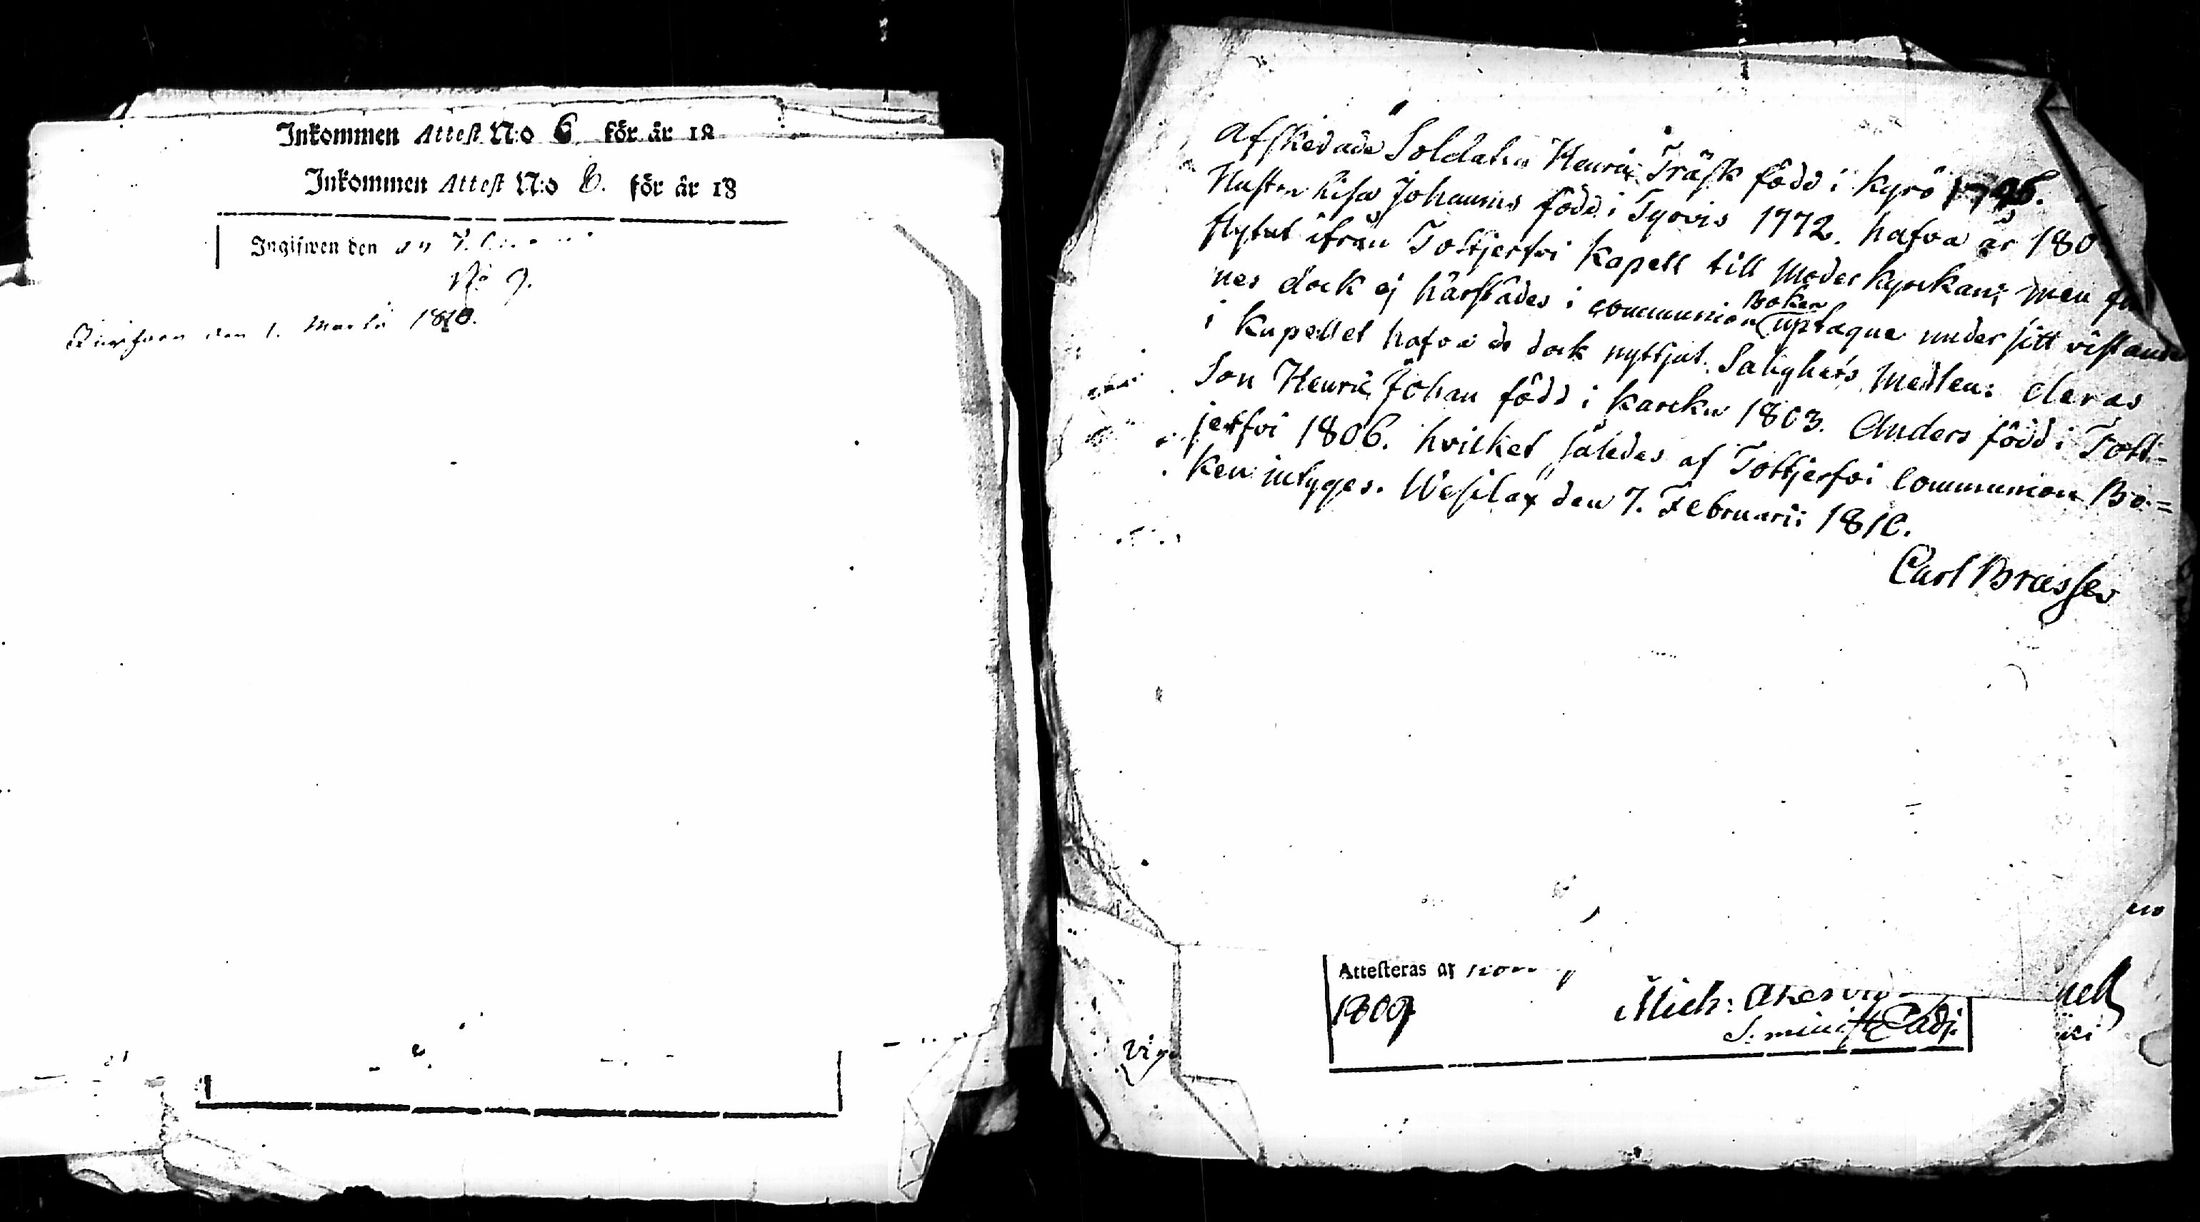 Inkommen Attest N:o 6 för år 18
Inkommen Attest N:o 8. för år 18
Ingifwen den
No 9.
den 1. Martii 1810.
Afskedade Soldaten Henric Träsk född i Kyrö
Hustru Lisa Johansns född i Tyrvis 1772. hafva år 180
flytat ifrån Tottjerfvi Kapell till Moderkyrkan; men
nes dock ej härstädes i communion Boken uptagne under sitt vistande
i Kapellet hafva de dock nyttjat Salighets Medlen: deras
Son Henric Johan född i Karcku 1803. Anders född i Tott-
jerfvi 1806. hvilket således af Tottjerfvi Communion Bo-
ken intyges. Wesilax den 7. Februarii 1810.
Carl Brasser
Attesteras af
1809
Mich: